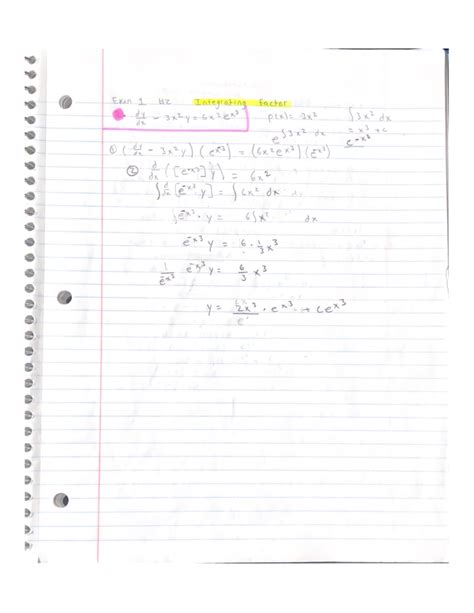 Exam 1 #2 Integrating Factor
dy/dx - 3x²y = 6x²e^x³ p(x) = 3x² ∫3x² dx
e^∫3x² dx = x³ + c
e^-x³
① (dy/dx - 3x²y)(e^-x³) = (6x²e^x³)(e^-x³)
② d/dx ([e^-x³]y) = 6x²
∫ d/dx [e^-x³ y] = ∫ 6x² dx
∫e^-x³ · y = 6∫x² dx
e^-x³ y = 6 · 1/3 x³
1/e^-x³ e^-x³ y = 6/3 x³
y = 2x³ · e^x³ + Ce^x³